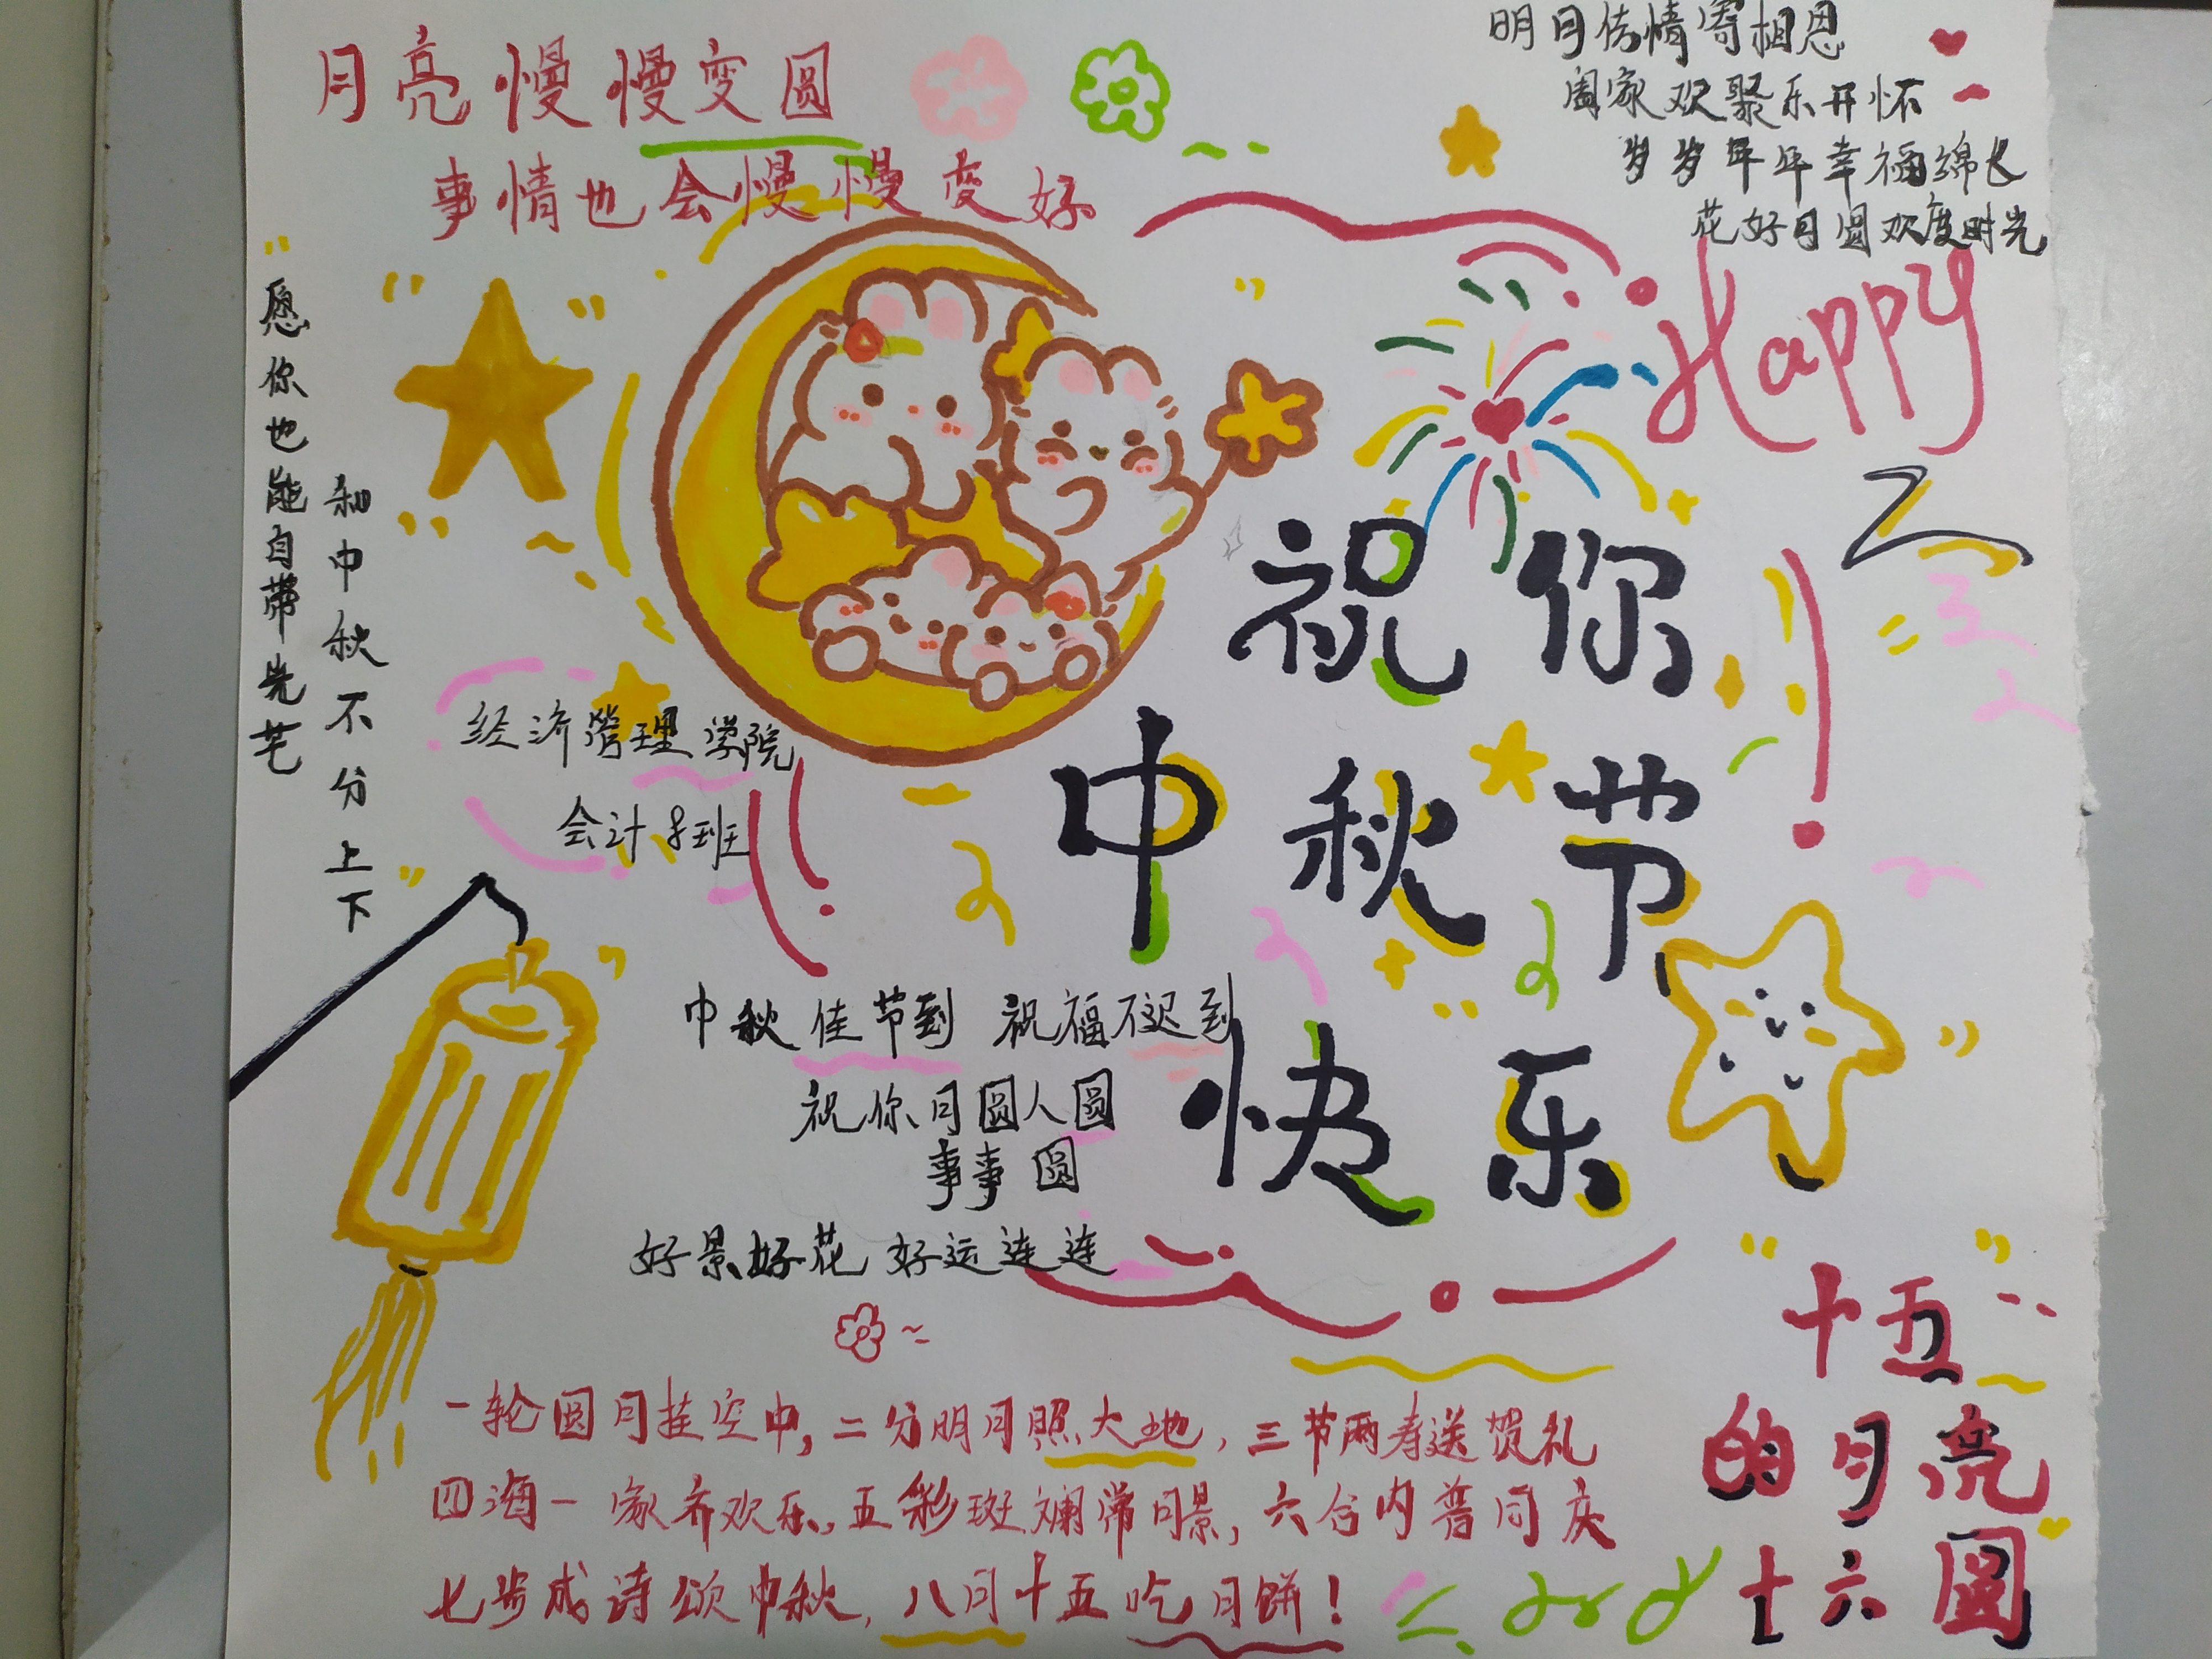 月亮慢慢变圆
事情也会慢慢变好
明月传情寄相思
阖家欢聚乐开怀
岁岁年年幸福绵长
花好月圆欢度时光
Happy
愿你也能自带光芒
和中秋不分上下
经济管理学院
会计8班
祝你
中秋节
快乐
中秋佳节到 祝福不迟到
祝你月圆人圆
事事圆
好景好花 好运连连
一轮圆月挂空中，二分明月照大地，三节两寿送贺礼
四海一家齐欢乐，五彩斑斓常同景，六合内普同庆
七步成诗颂中秋，八月十五吃月饼！
十五
的月亮
十六圆